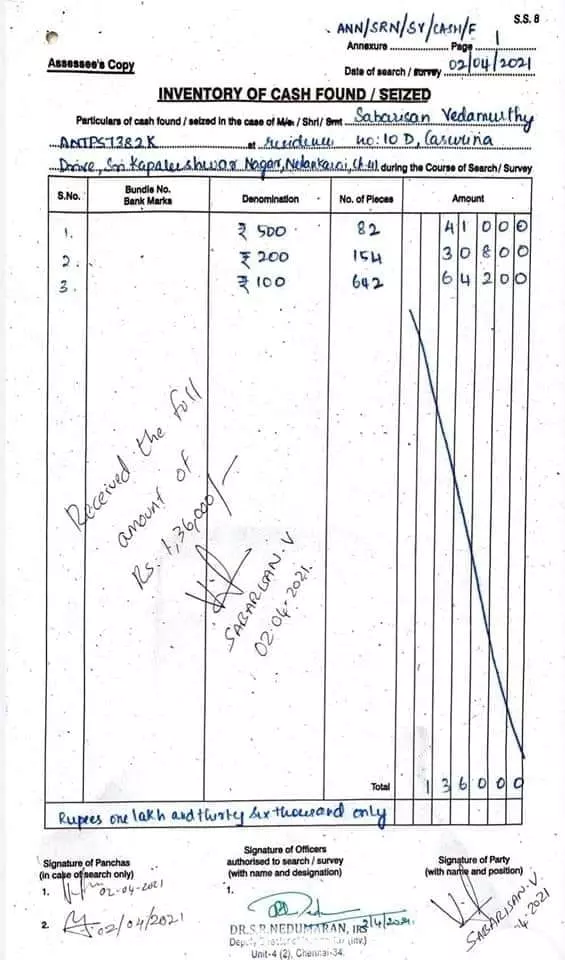 S.S. 8
ANN/SRN/SY/CASH/F
Annexure Page 1
Assessee's Copy
Date of search / survey 02/04/2021
INVENTORY OF CASH FOUND / SEIZED
Particulars of cash found / seized in the case of M/s / Shri / Smt Sabarisan Vedamurthy
at residence no: 10 D, Casurina
Drive, Sri Kapaleeshwar Nagar, Neelankarai, Ch-41 during the Course of Search / Survey
S.No. Bundle No. Bank Marks Denomination No. of Pieces Amount
1. ₹ 500 82 41000
2. ₹ 200 154 30800
3. ₹ 100 642 64200
Received the full
amount of
Rs. 1,36,000/-
SABARISAN.V
02.04.2021.
Total 136000
Rupees one lakh and thirty six thousand only
Signature of Panchas
(in case of search only)
1. 02-04-2021
2. 02/04/2021
Signature of Officers
authorised to search / survey
(with name and designation)
1.
2/4/2021
DR.S.R.NEDUMARAN, IRS
Deputy Director of (Inv.)
Unit-4 (2), Chennai-34.
Signature of Party
(with name and position)
SABARISAN.V.
4-2021